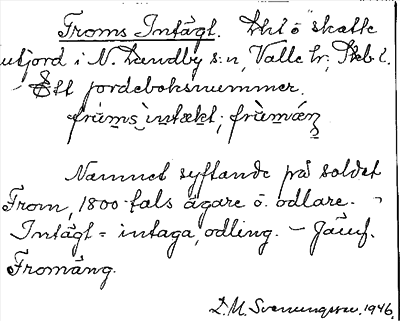 Froms Intägt. Del ö skatte
utjord i N. Lundby s:n, Valle hr, Skb. l.
- Ett jordeboksnummer.
frùms ìntækt; frùmæŋ
Namnet syftande på soldat
From, 1800-tals ägare o. odlare. -
Intägt = intaga, odling. - Jämf.
Fromäng.
D. M. Svenungsson. 1946.